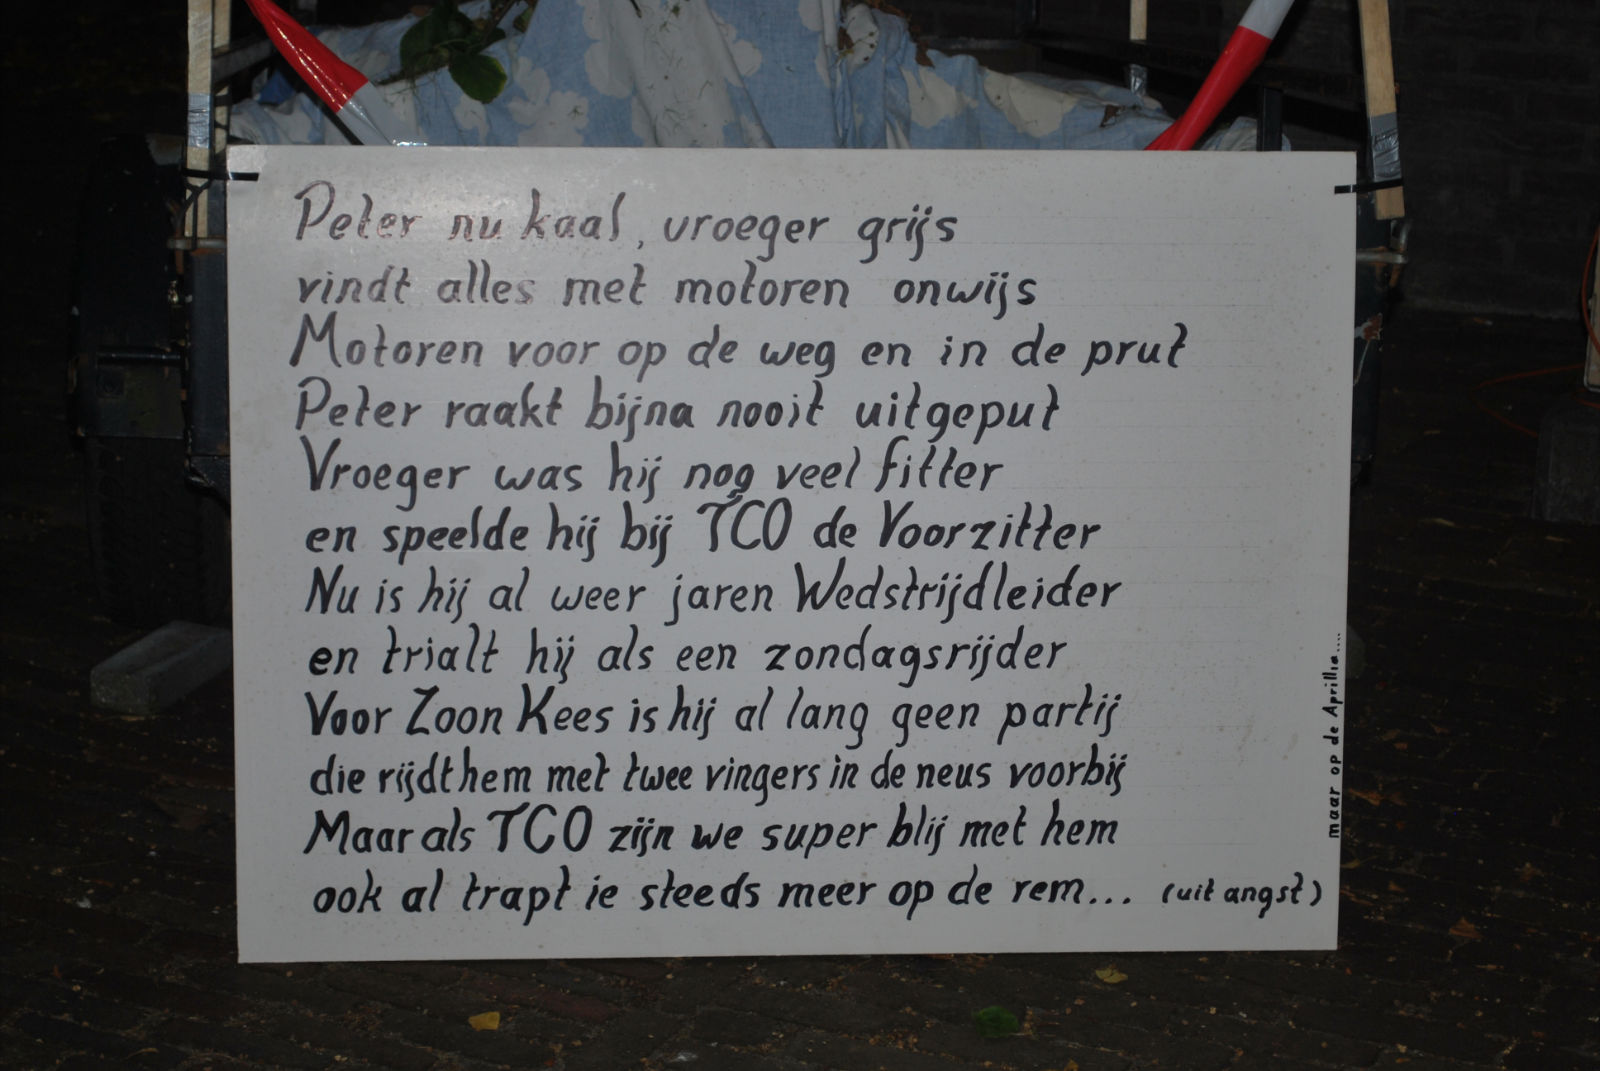 Peter nu kaal, vroeger grijs
vindt alles met motoren onwijs
Motoren voor op de weg en in de prut
Peter raakt bijna nooit uitgeput
Vroeger was hij nog veel fitter
en speelde hij bij TCO de Voorzitter
Nu is hij al weer jaren Wedstrijdleider
en trialt hij als een zondagsrijder
Voor Zoon Kees is hij al lang geen partij
die rijdt hem met twee vingers in de neus voorbij
Maar als TCO zijn we super blij met hem
ook al trapt ie steeds meer op de rem... (uit angst)
maar op de Aprillia....